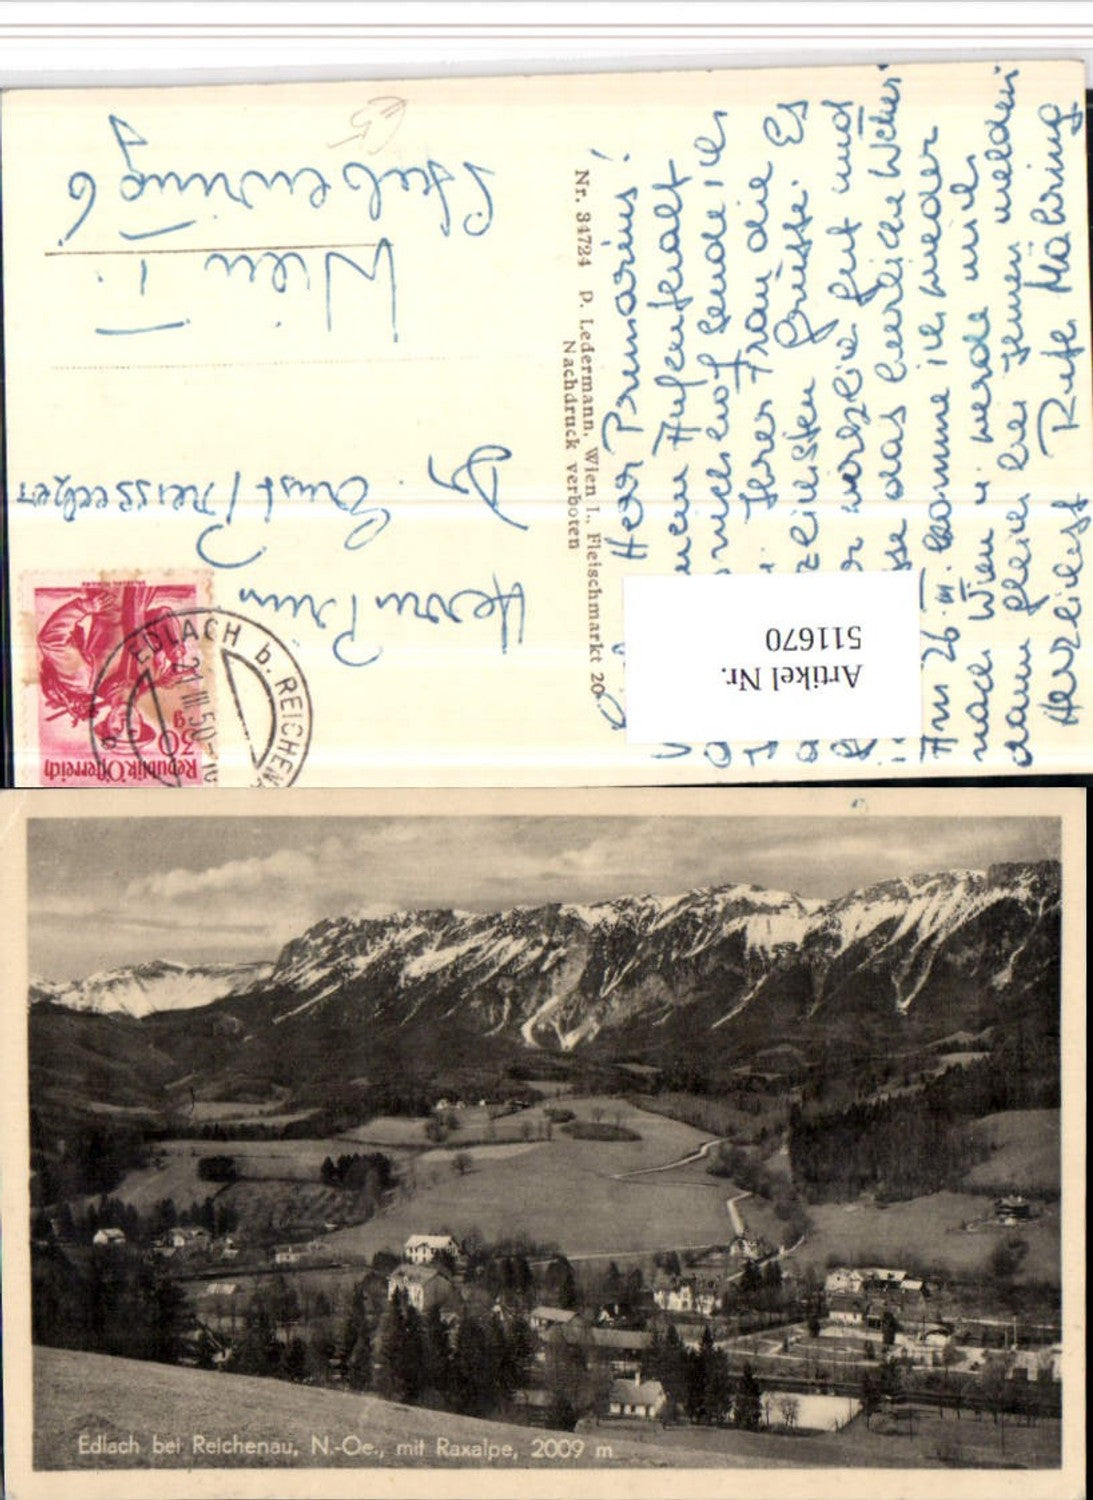 Herrn Prim.
Dr. Ernst
Wien I.
Stubenring 6
Republik Österreich
30 g
EDLACH b. REICHENA
21 III 50
Nr. 34724 D. Ledermann, Wien I., Fleischmarkt 20
Nachdruck verboten
Herr Primarius!
Aufenthalt
sende ich
Ihrer Frau die
herzlichsten Grüsse. Es
gut und
das herrliche Wetter
Am 26. III. komme ich wieder
nach Wien u. werde mich
dann gleich bei Ihnen melden
Herzlichst Ruth Mähring
Artikel Nr.
511670
Edlach bei Reichenau, N.-Oe., mit Raxalpe, 2009 m